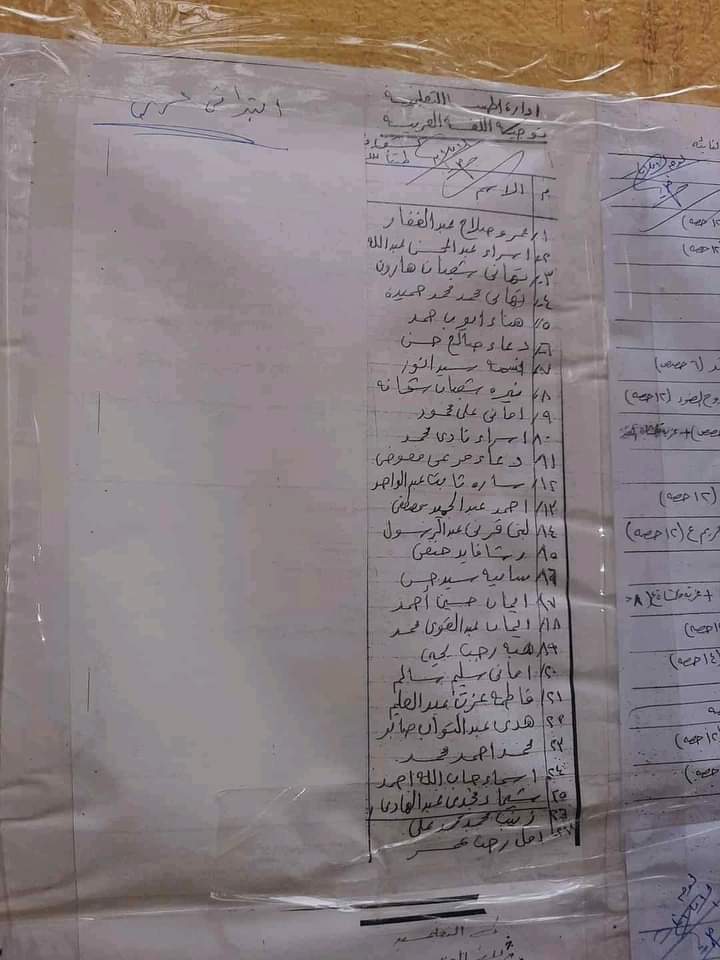 ابتدائي عربي
ادارة التعليمية
توجيه اللغة العربية
م الاسم
١/ عمرو صلاح عبد الغفار
٢/ اسراء عبد المحسن عبدالله
٣/ تهانى شعبان هارون
٤/ تهانى محمد محمد حميدة
٥/ هناء ايوب حمد
٦/ دعاء صالح حسن
٧/ سيد النور
٨/ نيره شعبان شحاته
٩/ امانى على محمود
١٠/ اسراء نادى محمد
١١/ دعاء مرعى معوض
١٢/ ساره ثابت عبد الواحد
١٣/ احمد عبد الحميد مصطفى
١٤/ لبنى قرنى عبد الرسول
١٥/ رشا فايد حنفى
١٦/ سامية سيد حسن
١٧/ ايمان حسين أحمد
١٨/ ايمان عبد القوى محمد
١٩/ هبه رجب يحيى
٢٠/ امانى سليم سالم
٢١/ فاطمه عزت عبد العليم
٢٢ هدى عبد التواب صابر
٢٣ محمد احمد محمد
٢٤ اسماء جاب الله احمد
٢٥ شيماء مجدى عبد الهادى
٢٦ زينب محمد محمد على
٢٧ امل رجب عمر
(١٢ حصه)
(١٢ حصه)
(٦ حصص)
(١٢ حصه)
(١٢ حصه)
(١٢ حصه)
حصه)
(١٤ حصه)
(١٢ حصه)
حصه)
التعليمية